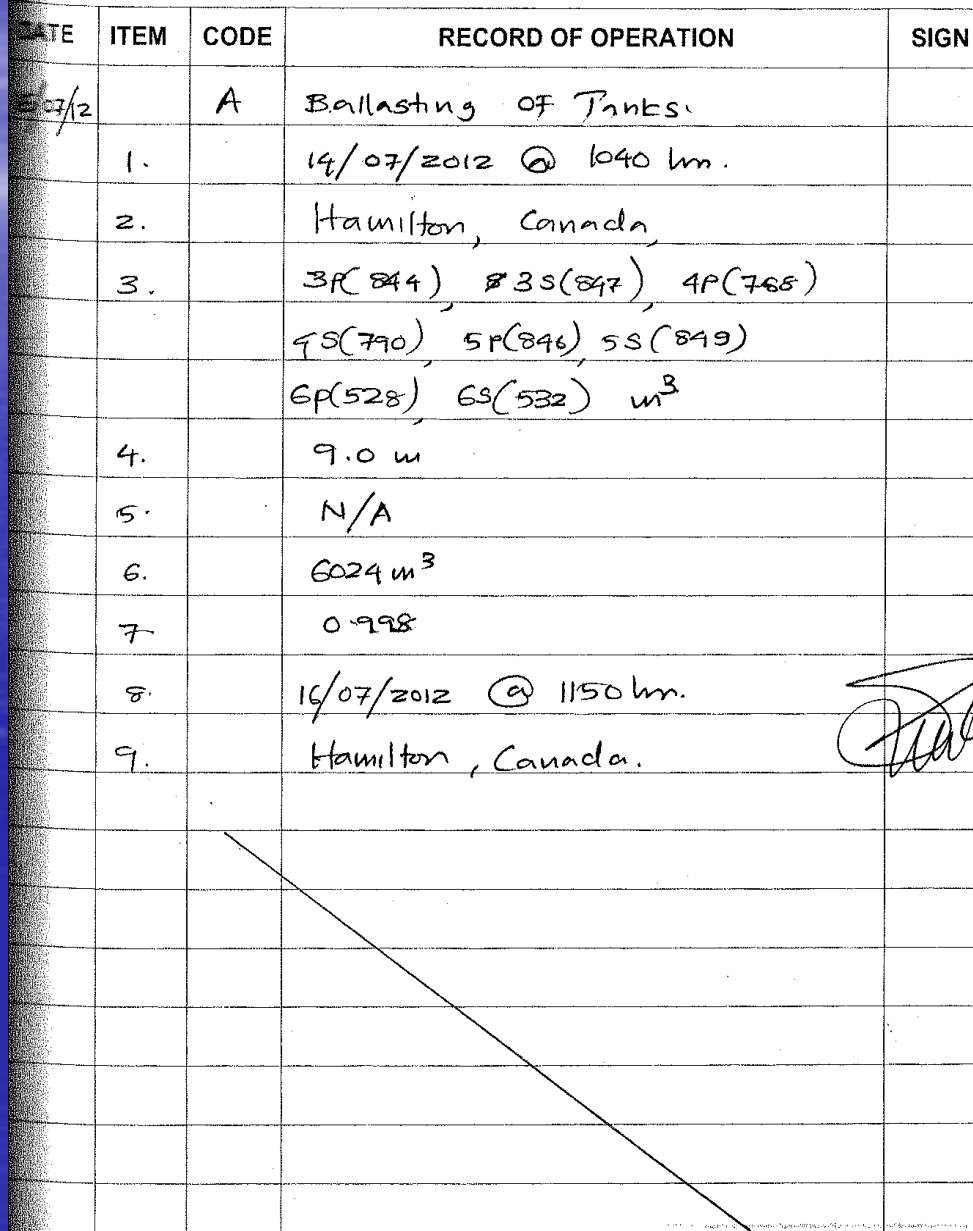 ITEM CODE RECORD OF OPERATION SIGN
07/12 A Ballasting OF Tanks.
1. 14/07/2012 @ 1040 hrs.
2. Hamilton, Canada,
3. 3P(844), 3S(847), 4P(788)
4S(790), 5P(846), 5S(849)
6P(528), 6S(532) m³
4. 9.0 m
5. N/A
6. 6024 m³
7. 0.998
8. 16/07/2012 @ 1150 hrs.
9. Hamilton, Canada.